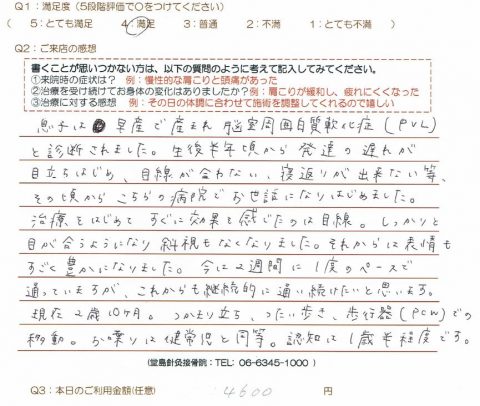 Q1：満足度（5段階評価で○をつけてください）
（ 5：とても満足 4：満足 3：普通 2：不満 1：とても不満 ）
Q2：ご来店の感想
書くことが思いつかない方は、以下の質問のように考えて記入してみてください。
①来院時の症状は？ 例：慢性的な肩こりと頭痛があった
②治療を受け続けてお身体の変化はありましたか？例：肩こりが緩和し、疲れにくくなった
③治療に対する感想 例：その日の体調に合わせて施術を調整してくれるので嬉しい
息子は 早産で産まれ 脳室周囲白質軟化症（PVL）
と診断されました。生後半年頃から 発達の遅れが
目立ちはじめ、目線が合わない、寝返りが出来ない等、
その頃から こちらの病院でお世話になりはじめました。
治療をはじめて すぐに効果を感じたのは目線。しっかりと
目が合うようになり 斜視もなくなりました。それからは表情も
すごく豊かになりました。今は2週間に1度のペースで
通っていますが、これからも継続的に通い続けたいと思います。
現在2歳10ヶ月。つかまり立ち、つたい歩き、歩行器（PCW）での
移動。お喋りは健常児と同等。認知は1歳半程度です。
（堂島針灸接骨院：TEL：06-6345-1000 ）
Q3：本日のご利用金額（任意） 4600 円